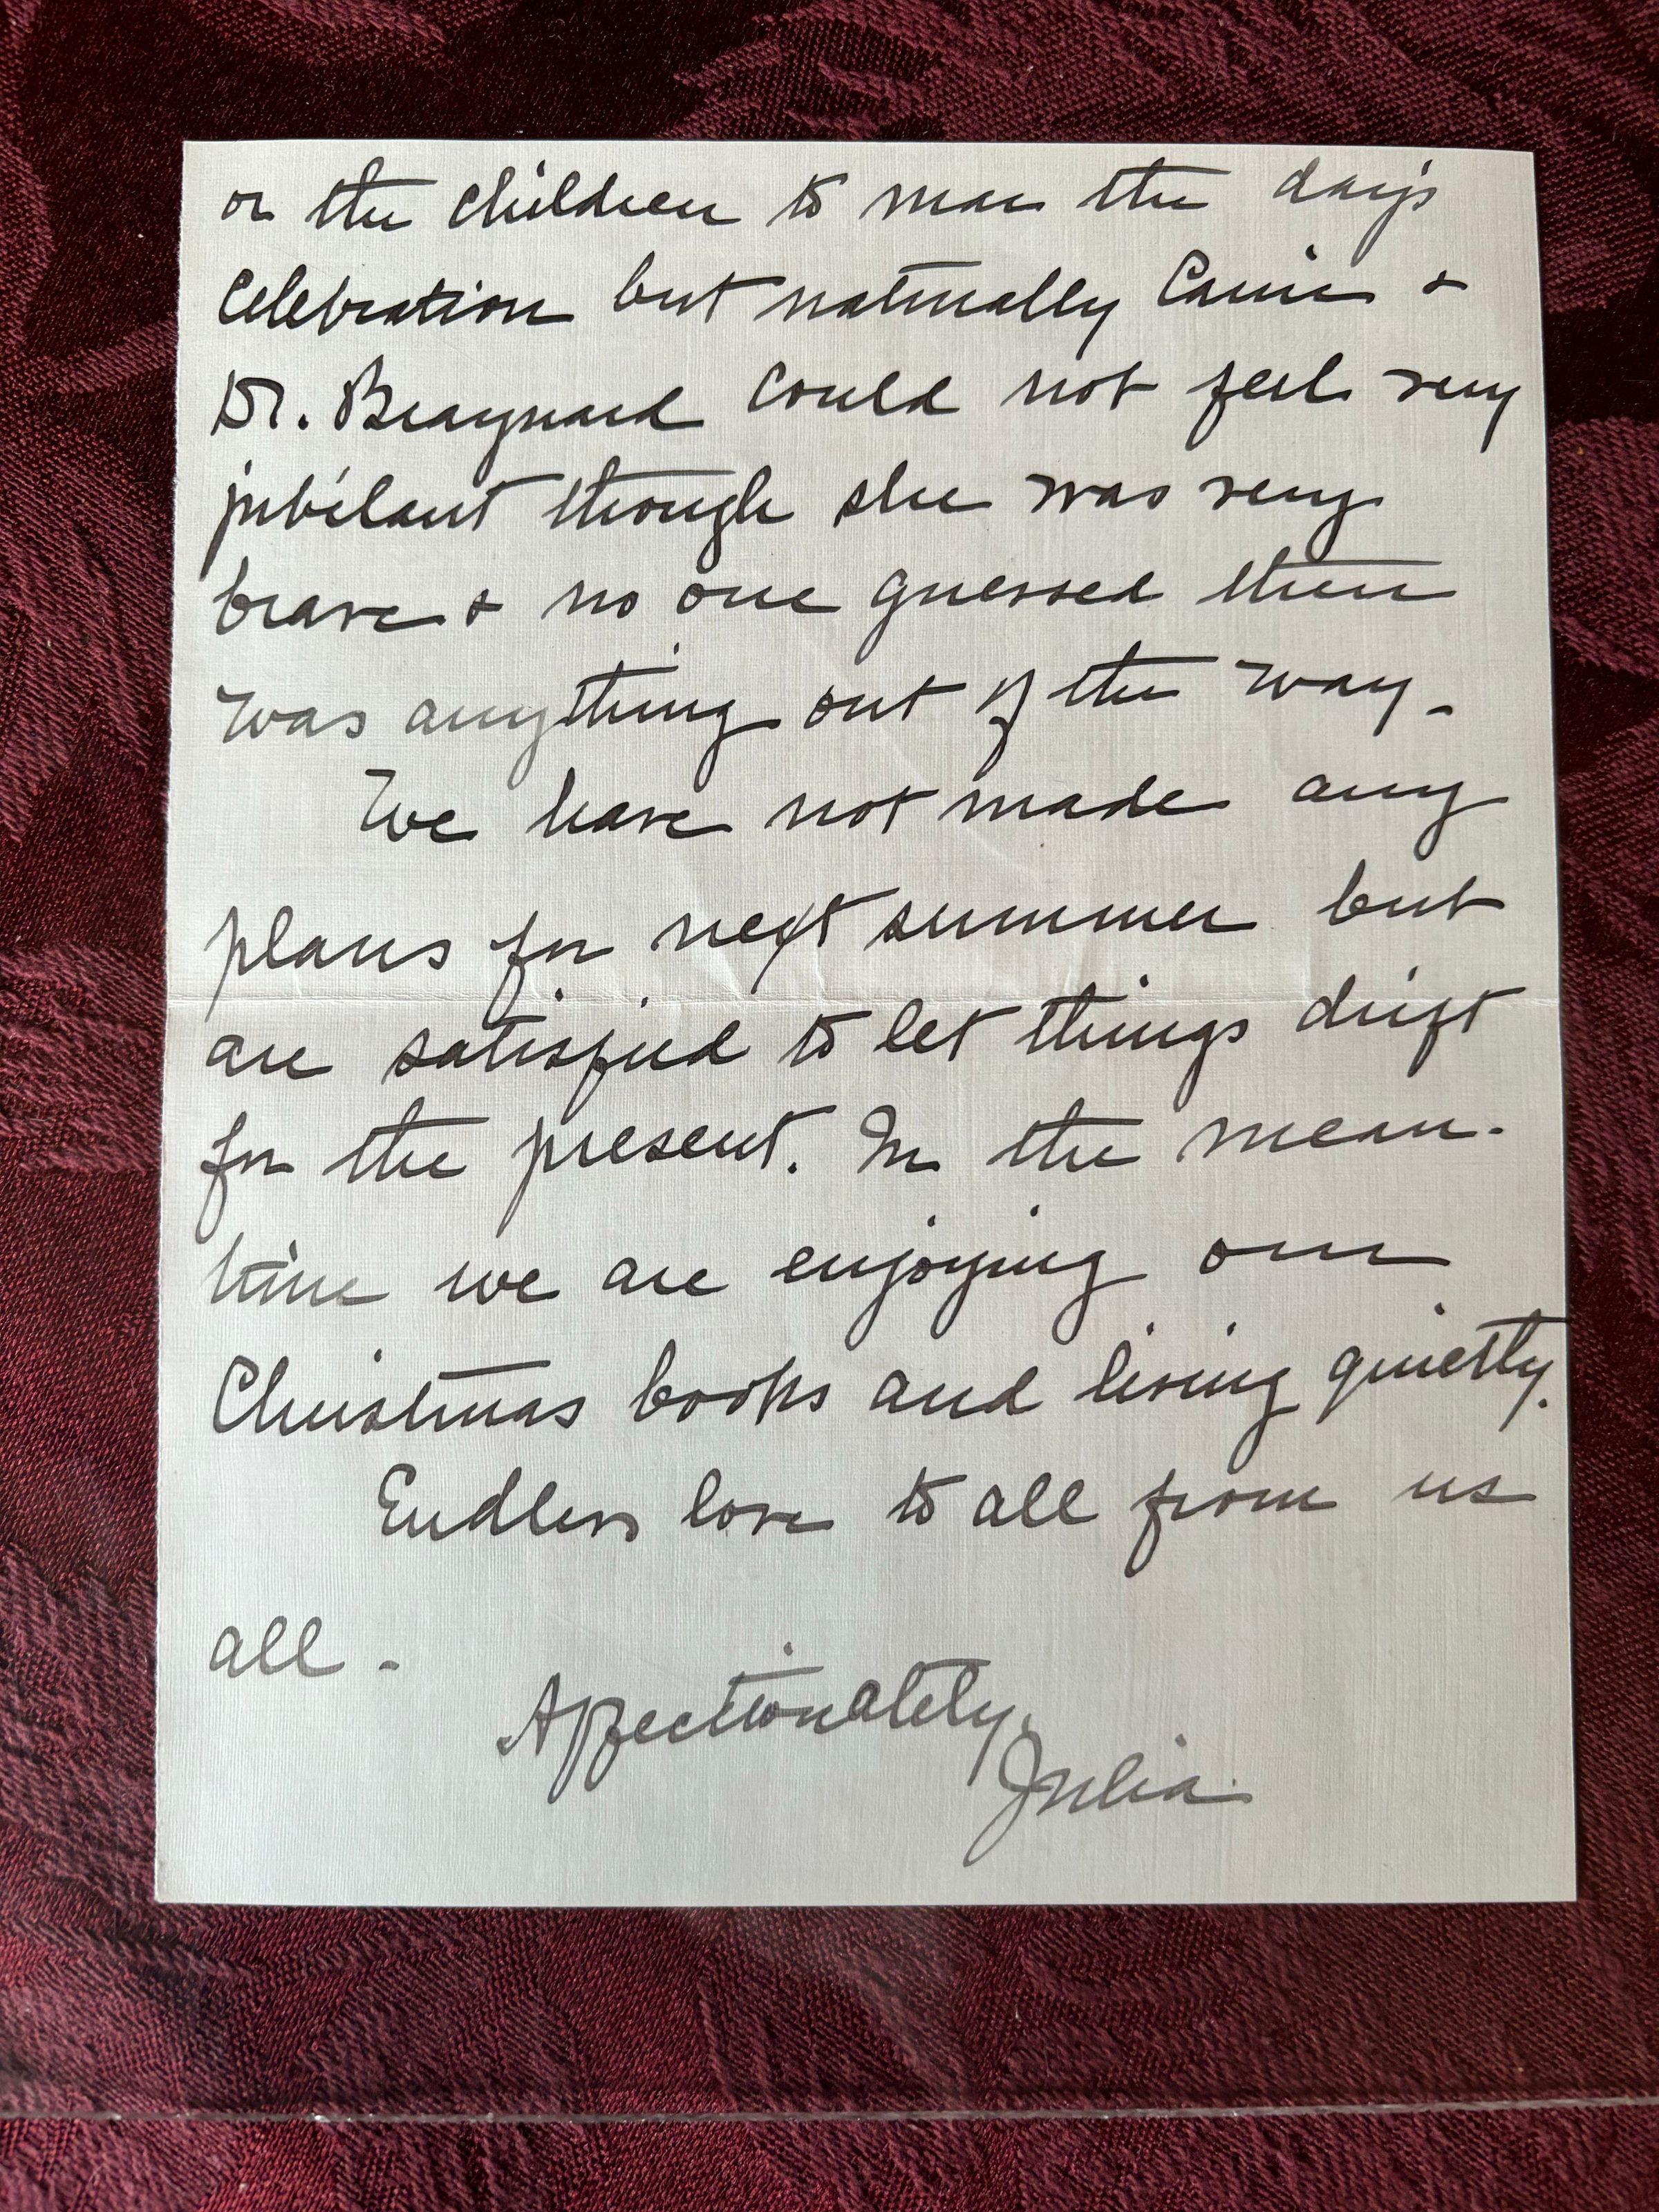 or the children to mar the day's
celebration but naturally Carrie &
Dr. Braynard could not feel very
jubilant though she was very
brave & no one guessed there
was anything out of the way -
We have not made any
plans for next summer but
are satisfied to let things drift
for the present. In the mean-
time we are enjoying our
Christmas books and living quietly.
Endless love to all from us
all -
Affectionately,
Julia